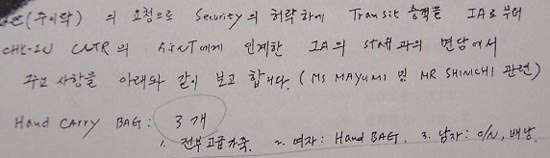 (주이탁) 의 요청으로 Security의 허락하에 Transit 승객을 IA로부터
CHK-IN CNTR의 AGNT에게 인계한 IA의 STAFF과의 면담에서
주요 사항을 아래와 같이 보고 합니다. (MS MAYUMI 및 MR SHINICHI 관련)
Hand CARRY BAG: 3개
1. 전부 고급가죽. 2. 여자: Hand BAG. 3. 남자: O/N, 배낭.